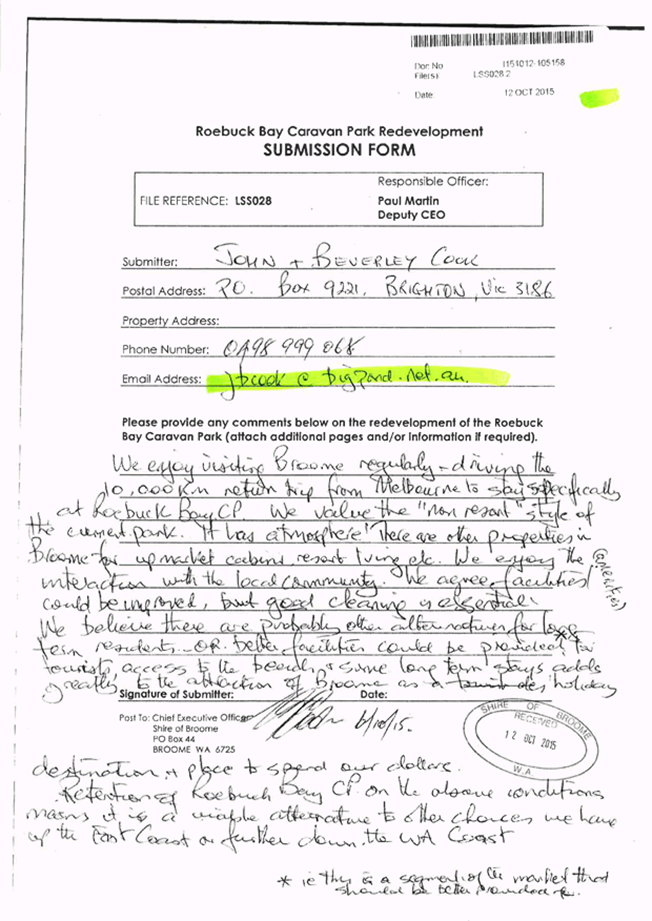 Doc No I151012-105158
File(s) LSS028.2
Date 12 OCT 2015
Roebuck Bay Caravan Park Redevelopment
SUBMISSION FORM
FILE REFERENCE: LSS028
Responsible Officer:
Paul Martin
Deputy CEO
Submitter: JOHN + BEVERLEY COOK
Postal Address: P.O. Box 9221, BRIGHTON, Vic 3186
Property Address:
Phone Number: 0498 999 068
Email Address: jbcook@bigpond.net.au.
Please provide any comments below on the redevelopment of the Roebuck
Bay Caravan Park (attach additional pages and/or information if required).
We enjoy visiting Broome regularly - driving the
10,000km return trip from Melbourne to stay specifically
at Roebuck Bay CP. We value the "non resort" style of
the current park. It has atmosphere! There are other properties in
Broome for up market cabins, resort living etc. We enjoy the
interaction with the local community. We agree facilities (amenities)
could be improved, but good cleaning is essential.
We believe there are probably other alternatives for long
term residents - OR better facilities could be provided.* for
tourists access to the beach, + some long term stays adds
greatly to the attraction of Broome as a holiday
Signature of Submitter: Date:
6/10/15.
Post To: Chief Executive Officer
Shire of Broome
PO Box 44
BROOME WA 6725
SHIRE OF BROOME
RECEIVED
12 OCT 2015
W.A.
destination, + place to spend our dollars.
Retention of Roebuck Bay CP on the above conditions
means it is a viable alternative to other choices we have
up the East Coast or further down the WA Coast
* ie this is a segment of the market that
should be better provided for.